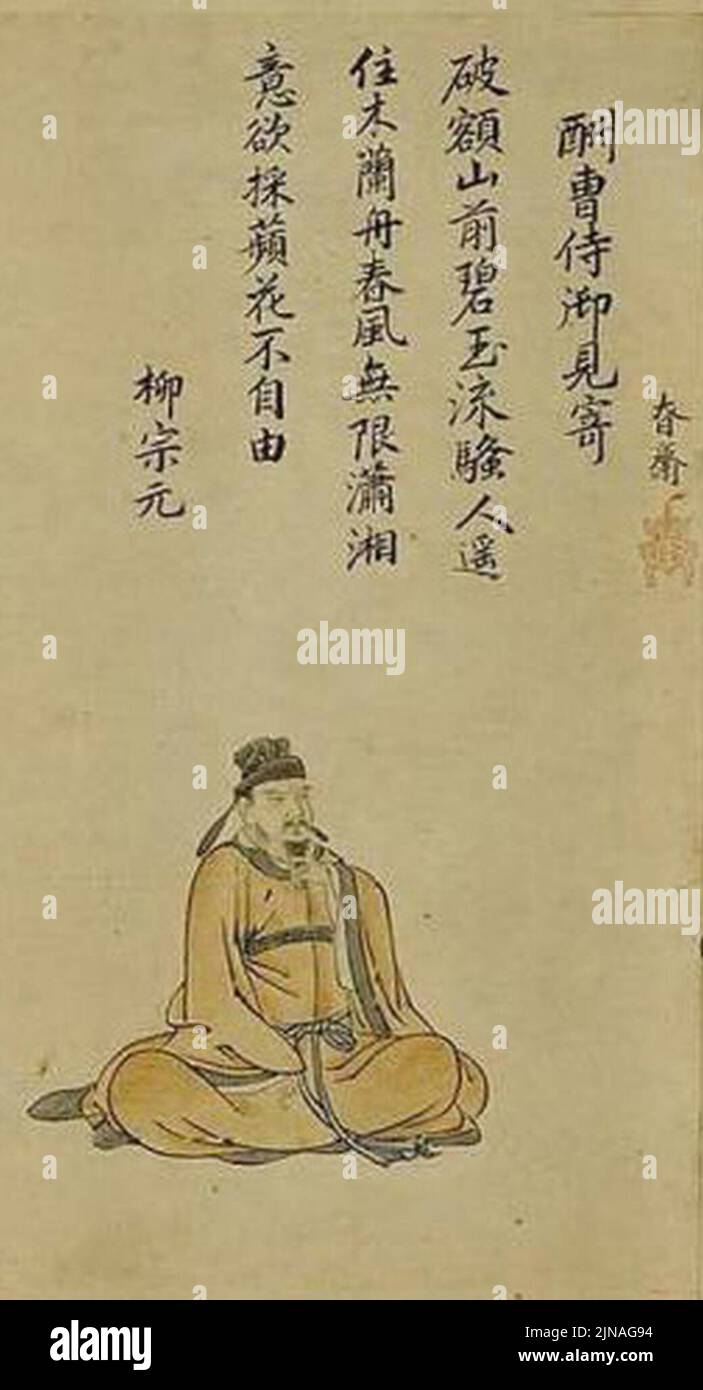 春齋
酬曹侍御見寄
破額山前碧玉流騷人遥
住木蘭舟春風無限瀟湘
意欲採蘋花不自由
柳宗元
alamy
alamy
alamy
alamy
Image ID: 2JNAG94
www.alamy.com